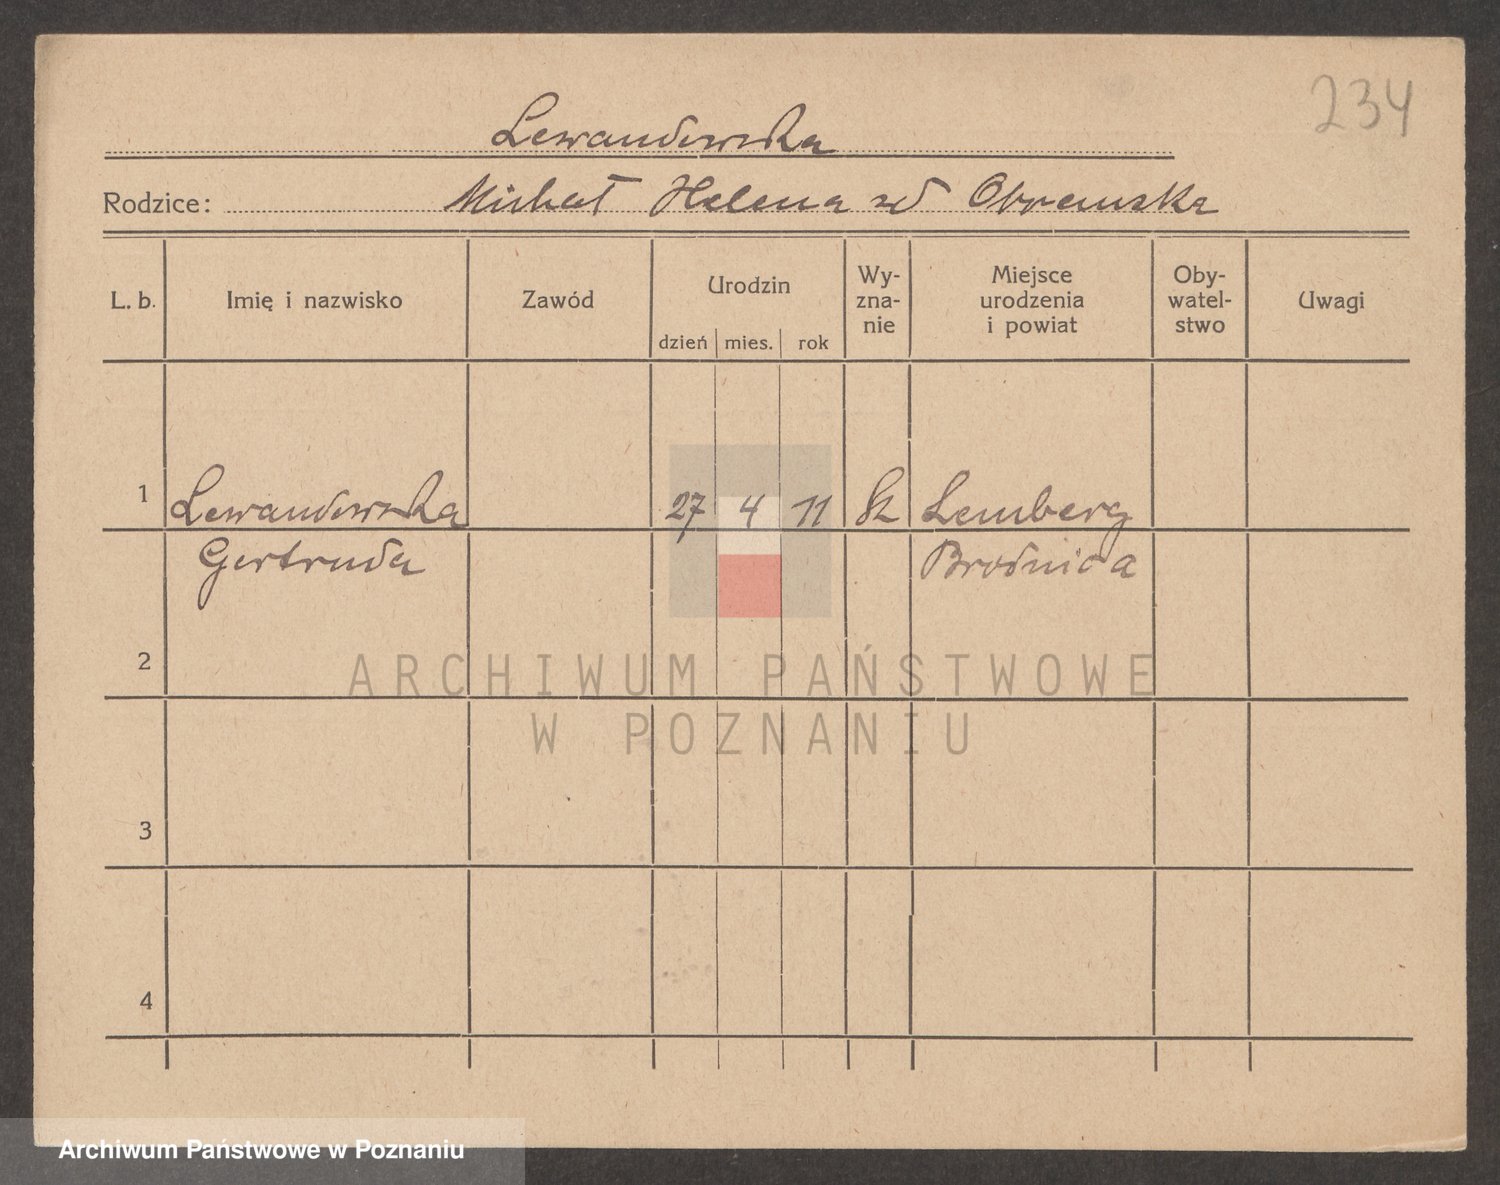 234
Lewandowska
Rodzice: Michał Helena zd Obremska
L. b. Imię i nazwisko Zawód Urodzin dzień mies. rok Wy-zna-nie Miejsce urodzenia i powiat Oby-watel-stwo Uwagi
1 Lewandowska 27 4 11 rk Lemberg
Gertruda Brodnica
2
ARCHIWUM PAŃSTWOWE
W POZNANIU
3
4
Archiwum Państwowe w Poznaniu